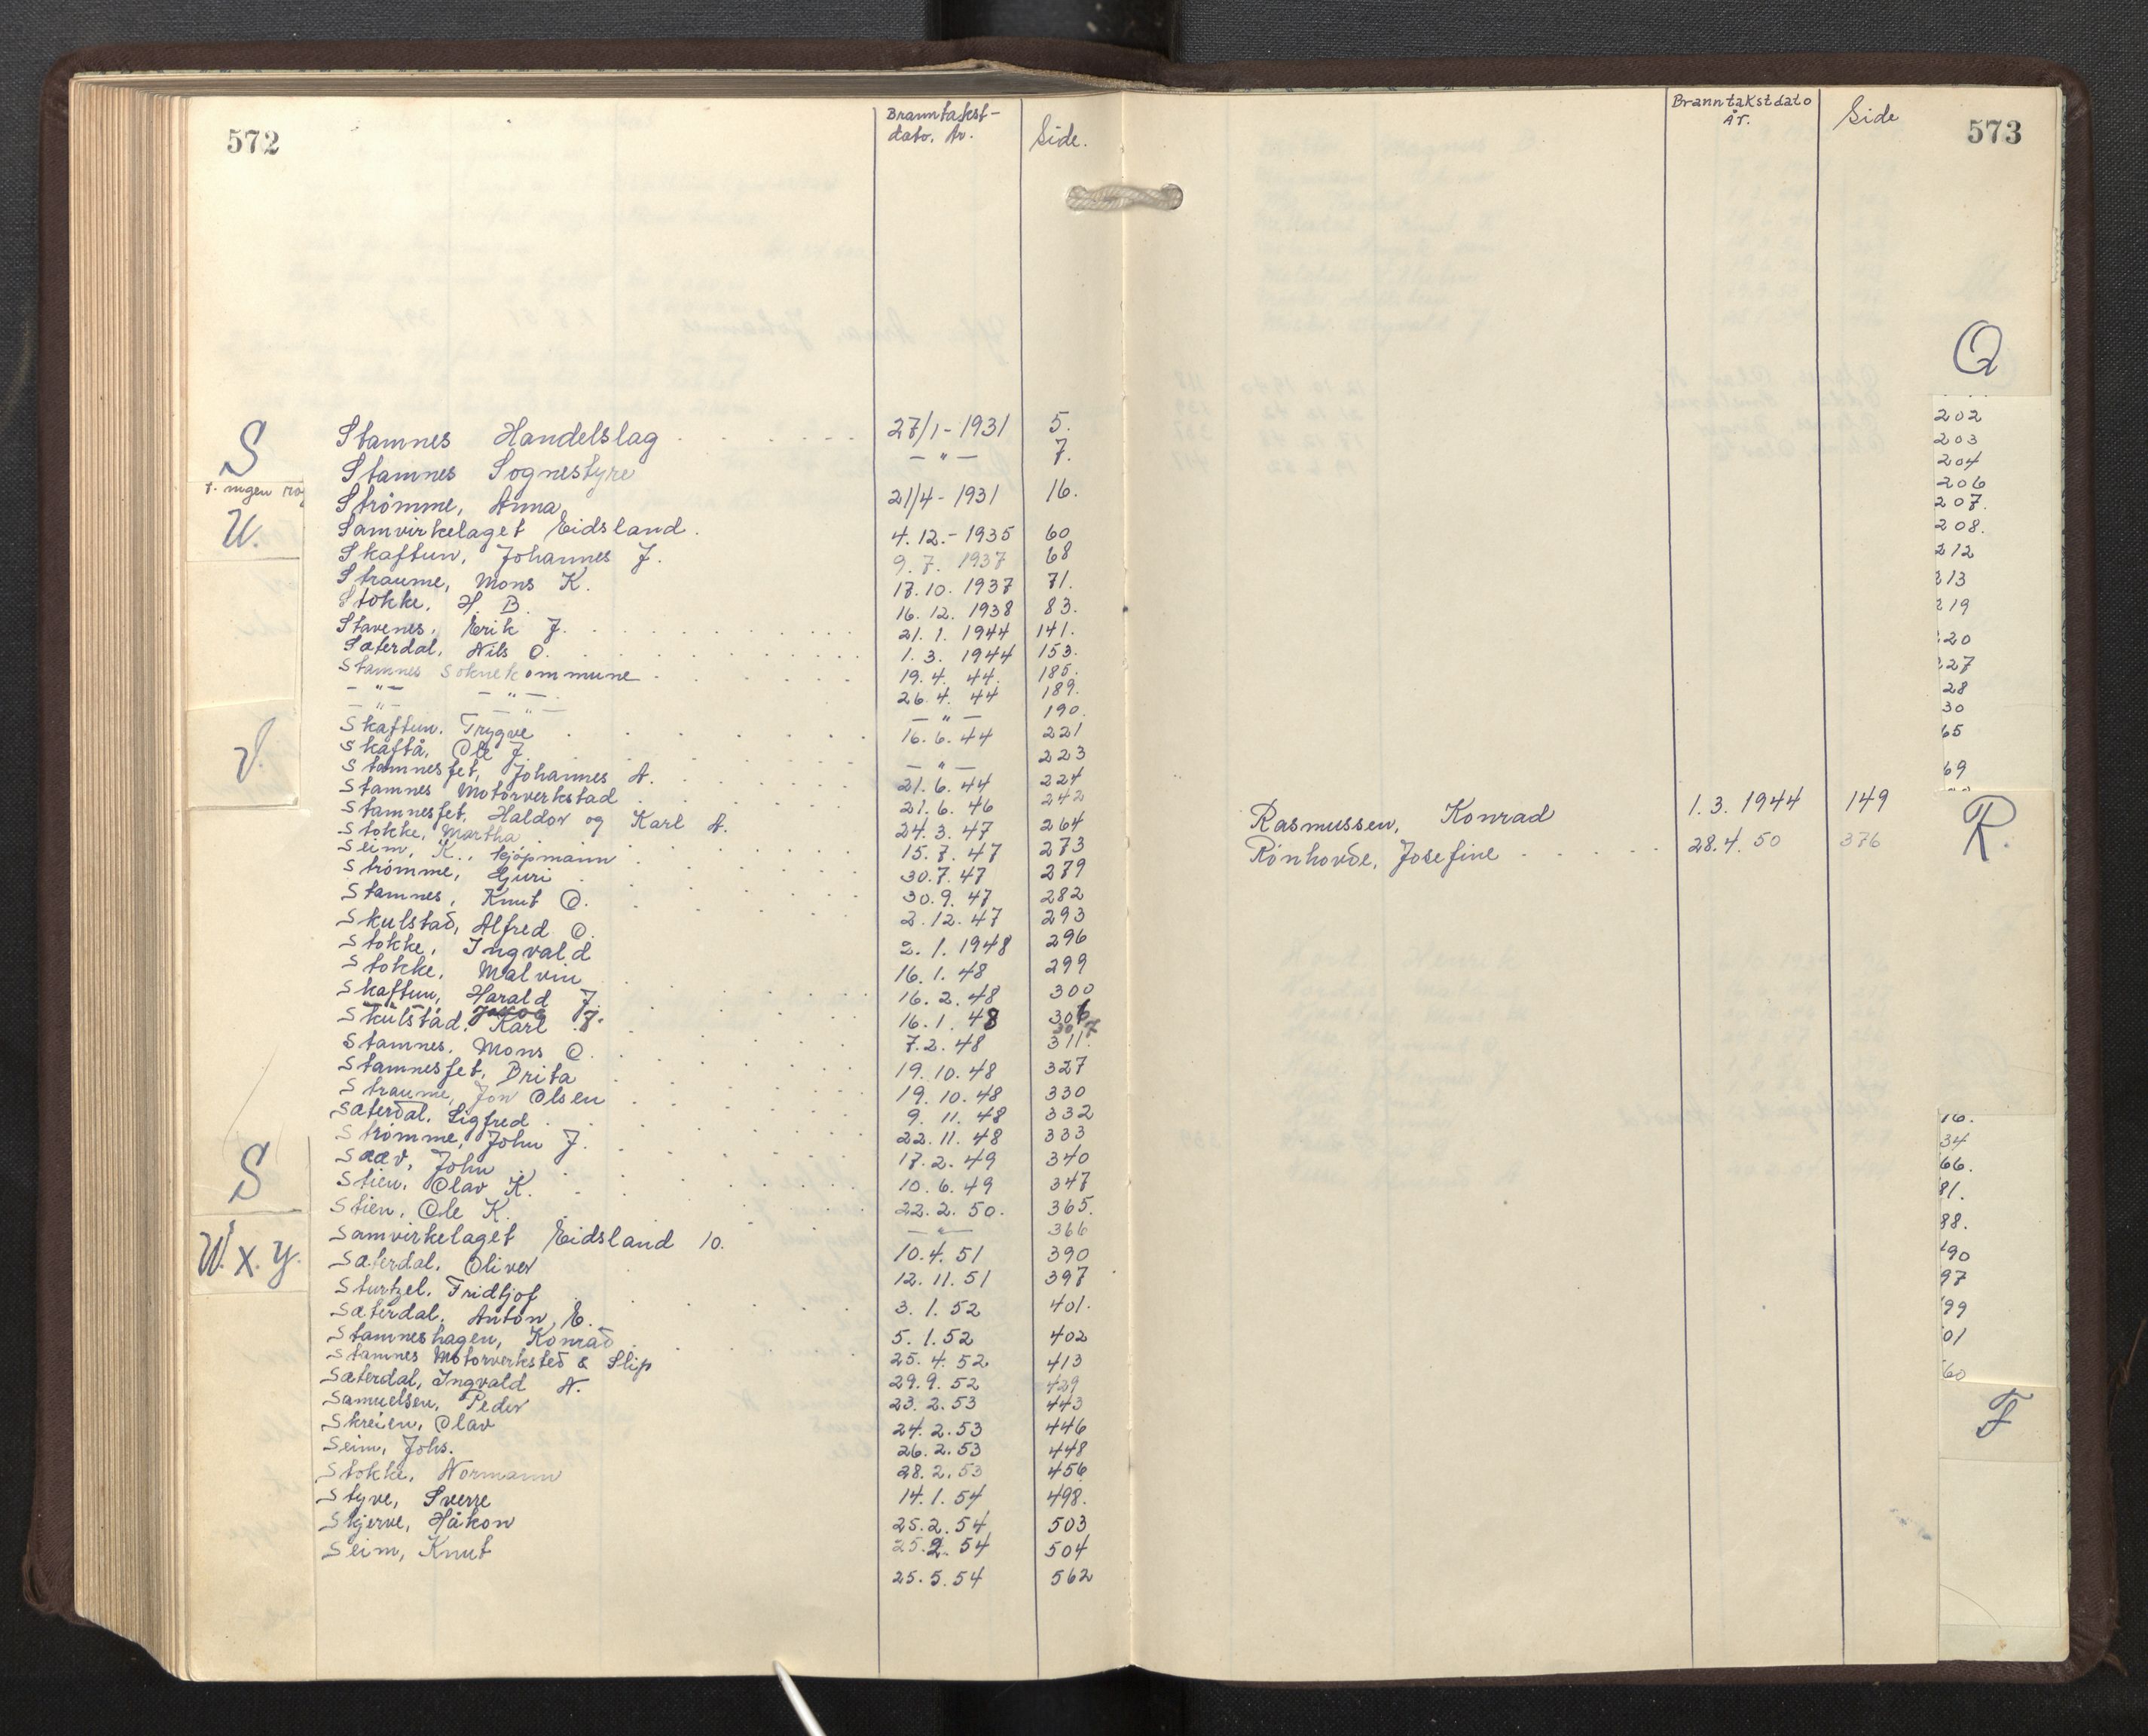 572
Branntakst-
dato. år. Side.
S
t. ingen
U.
V.
S
W. X. Y.
Stamnes Handelslag 27/1-1931 5.
Stamnes Sognestyre — " — 7.
Strømme, Anna 21/4-1931 16.
Samvirkelaget Eidsland. 4.12.-1935 60
Skaftun, Johannes J. 9.7.1937 68
Straume, Mons K. 17.10.1937 71.
Stokke, H. B. 16.12.1938 83.
Stavenes, Erik J. 21.1.1944 141.
Sæterdal, Nils O. 1.3.1944 153.
Stamnes Soknekommune 19.4.44. 185.
— " — — " — 26.4.44 189.
— " — — " — — " — 190.
Skaftun, Trygve 16.6.44 221
Skaftå, Ole J. — " — 223
Stamnesfet, Johannes A. 21.6.44 224
Stamnes Motorverkstad 21.6.46 242
Stamnesfet, Haldor og Karl A. 24.3.47 264
Stokke, Martha 15.7.47 273
Seim, K., kjøpmann 30.7.47 279
Strømme, Guri 30.9.47 282
Stamnes, Knut O. 2.12.47 293
Skulstad, Alfred O. 2.1.1948 296
Stokke, Ingvald 16.1.48 299
Stokke, Malvin 16.2.48 300
Skaftun, Harald J. 16.1.48 306
Skulstad, Karl J. 7.2.48 307 311.
Stamnes, Mons O. 19.10.48 327
Stamnesfet, Brita 19.10.48 330
Straume, Jon Olsen 9.11.48 332
Sæterdal, Sigfred 22.11.48 333
Strømme, John J. 17.2.49 340
Saav, John 10.6.49 347
Stien, Olav K. 22.2.50. 365.
Stien, Ole K. — " — 366
Samvirkelaget Eidsland 10. 10.4.51 390
Sæterdal, Oliver 12.11.51 397
Sturtzel, Fridtjof 3.1.52 401.
Sæterdal, Anton, E. 5.1.52 402
Stamneshagen, Konrad 25.4.52 413
Stamnes Motorverksted & Slip 29.9.52 429
Sæterdal, Ingvald N. 23.2.53 443
Samuelsen, Peder 24.2.53 446
Skreien, Olav 26.2.53 448
Seim, Johs. 28.2.53 456
Stokke, Normann 14.1.54 498.
Styve, Sverre 25.2.54 503
Skjerve, Håkon 25.2.54 504
Seim, Knut 25.5.54 562
Branntakstdato
år. Side
573
Q
Rasmussen, Konrad 1.3.1944 149
Rønhovde, Josefine 28.4.50 376
R.
202
203
204
206
207.
208.
212
213
219
220
227
28
30
65
69
16.
34
66.
81.
88.
90
97
99
01
60
F